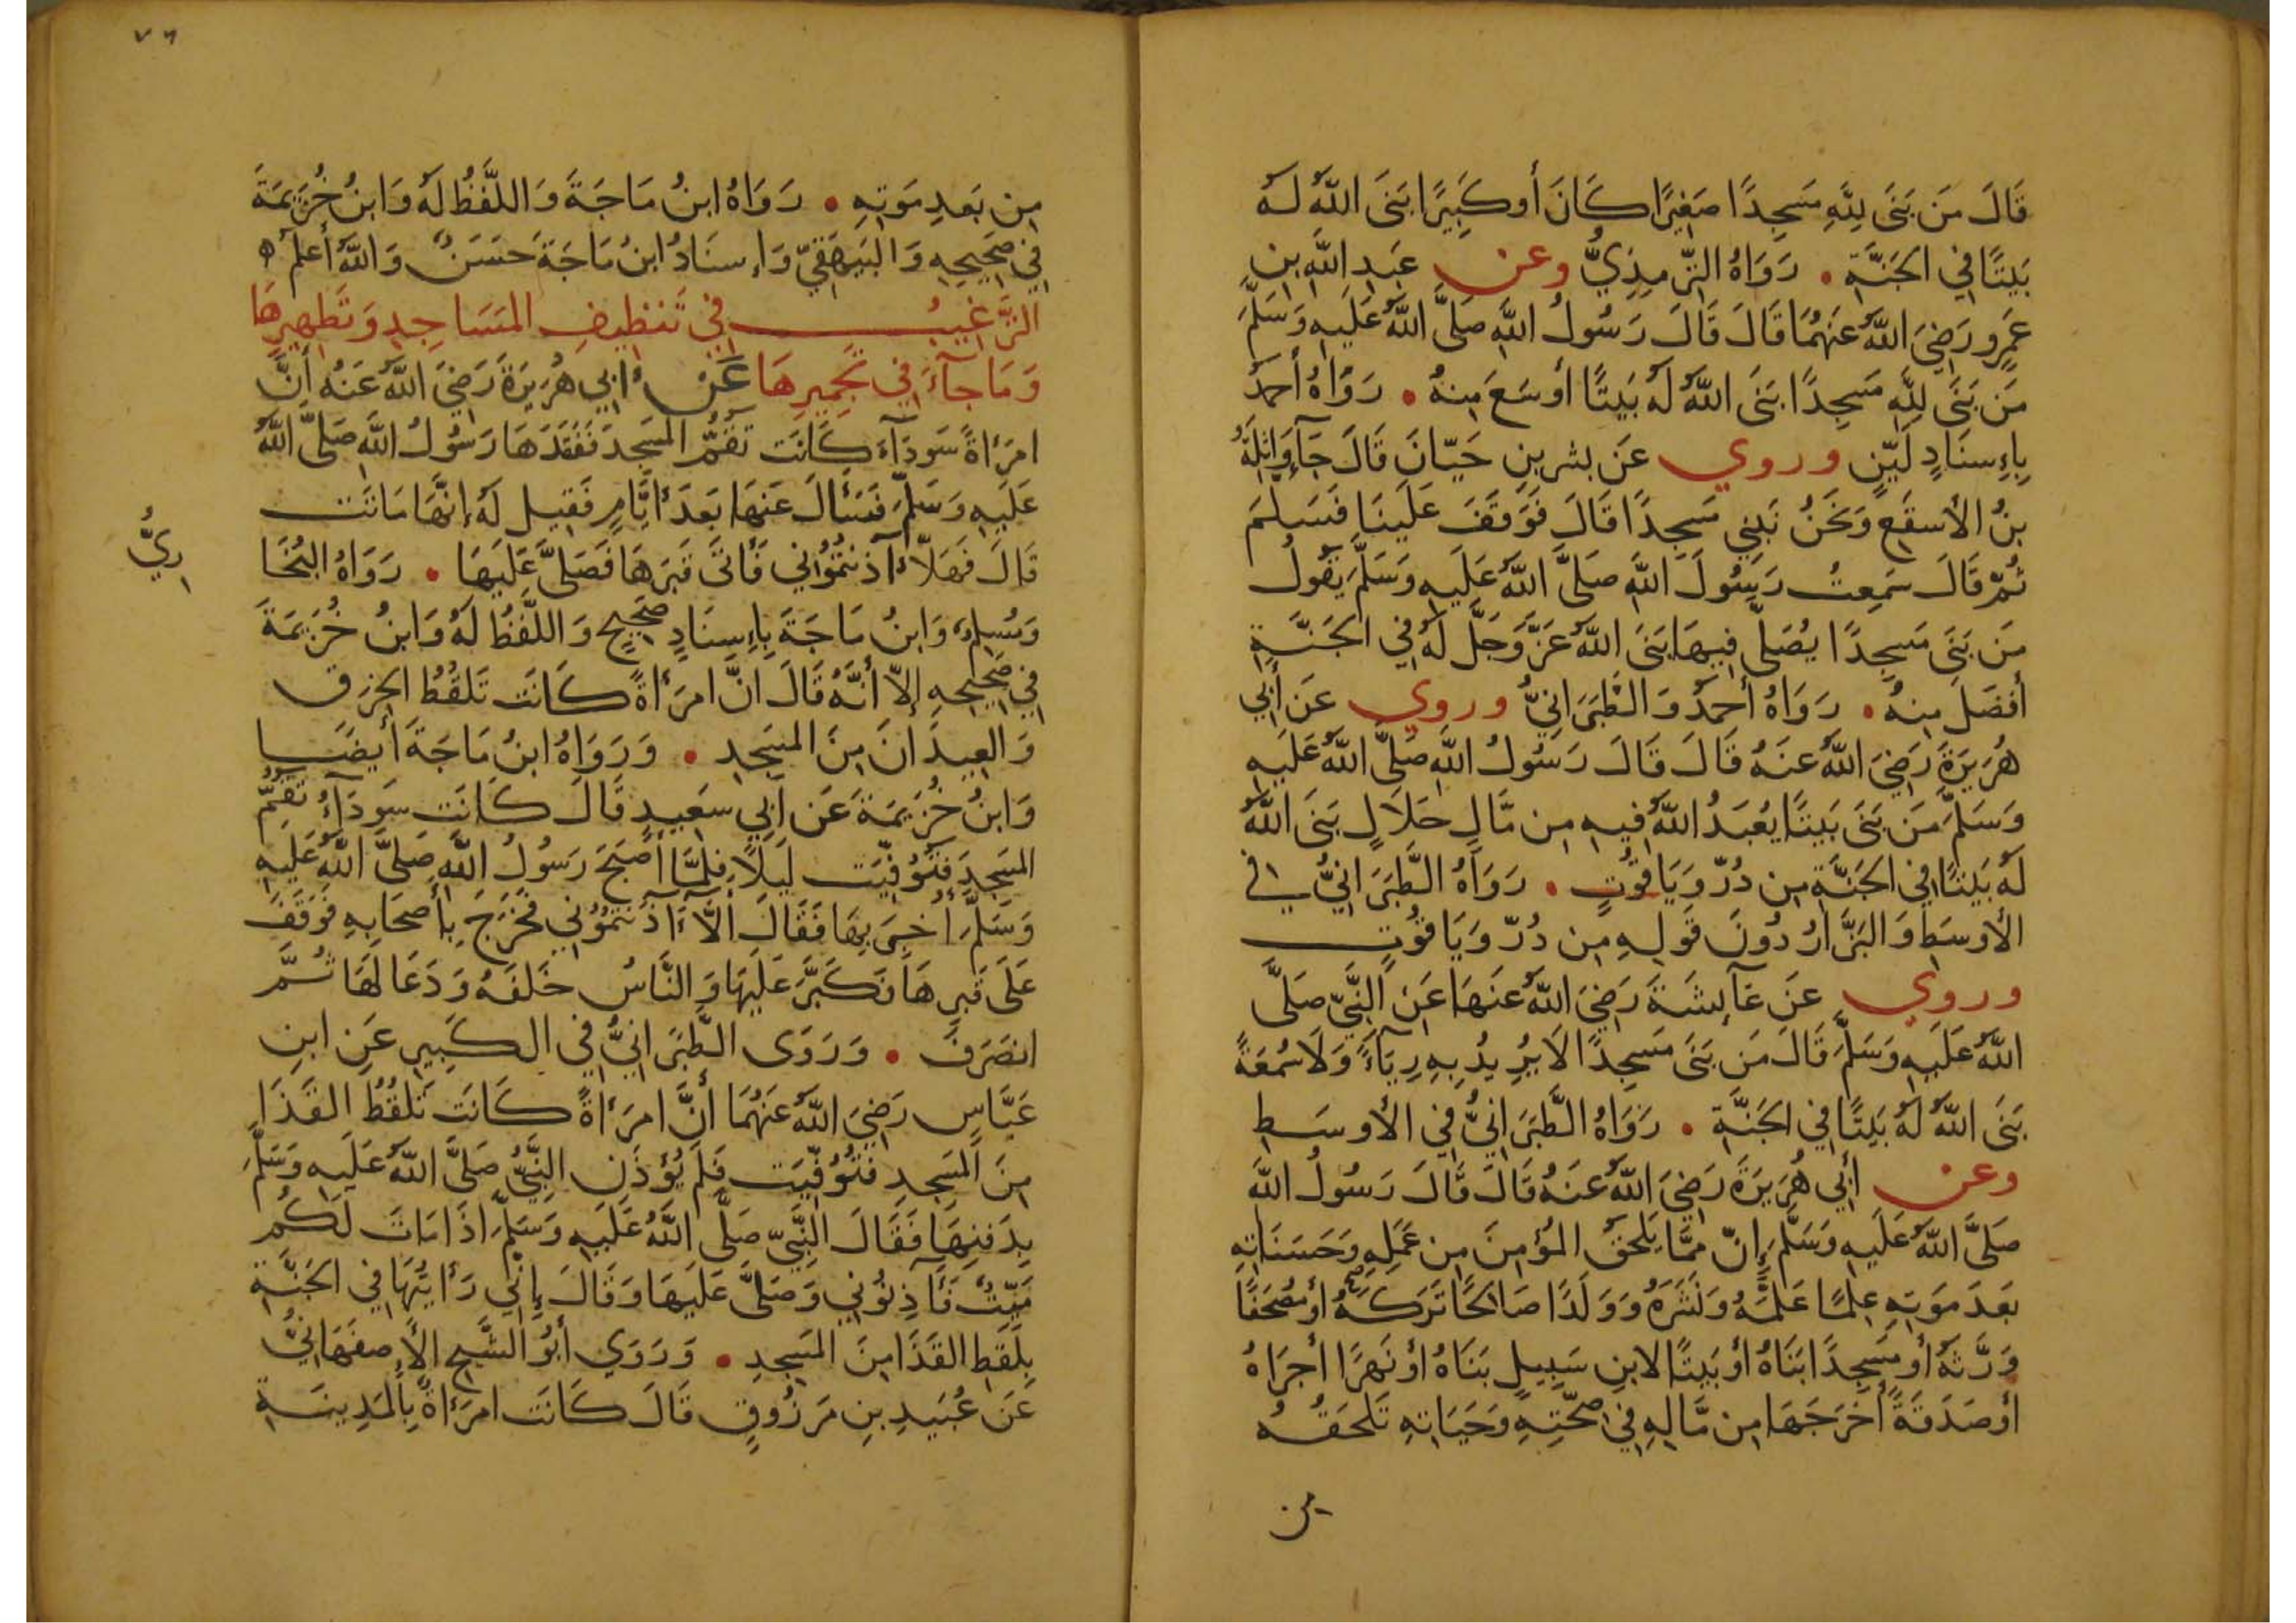 قَالَ مَن بَنَى لِلَّهِ مَسجِدًا صَغِيرًا كَانَ أَو كَبِيرًا بَنَى اللَّهُ لَهُ
بَيتًا فِي الجَنَّةِ • رَوَاهُ التِّرمِذِيُّ وعن عَبدِ اللَّهِ بنِ
عَمرٍو رَضِيَ اللَّهُ عَنهُمَا قَالَ قَالَ رَسُولُ اللَّهِ صَلَّى اللَّهُ عَلَيهِ وَسَلَّمَ
مَن بَنَى لِلَّهِ مَسجِدًا بَنَى اللَّهُ لَهُ بَيتًا أَوسَعَ مِنهُ • رَوَاهُ أَحمَدُ
بِإِسنَادٍ لَيِّنٍ وروي عَن بشرِ بنِ حَيّانَ قَالَ جَآءَ وَاثِلَةُ
بنُ الأَسقَعِ وَنَحنُ نَبنِي مَسجِدًا قَالَ فَوَقَفَ عَلَينَا فَسَلَّمَ
ثُمّ قَالَ سَمِعتُ رَسُولَ اللَّهِ صَلَّى اللَّهُ عَلَيهِ وَسَلَّمَ يَقُولُ
مَن بَنَى مَسجِدًا يُصَلَّى فِيهَا بَنَى اللَّهُ عَزَّ وَجَلَّ لَهُ فِي الجَنَّةِ
أَفضَلَ مِنهُ • رَوَاهُ أَحمَدُ وَالطَّبَرَانِيُّ وروي عَن أَبِي
هُرَيرَةَ رَضِيَ اللَّهُ عَنهُ قَالَ قَالَ رَسُولُ اللَّهِ صَلَّى اللَّهُ عَلَيهِ
وَسَلَّمَ مَن بَنَى بَيتًا يُعبَدُ اللَّهُ فِيهِ مِن مَّالٍ حَلَالٍ بَنَى اللَّهُ
لَهُ بَيتًا فِي الجَنَّةِ مِن دُرّ وَيَاقُوتٍ • رَوَاهُ الطَّبَرَانِيُّ فِي
الأَوسَطِ وَالبَزَّارُ دُونَ قَولِهِ مِن دُرّ وَيَاقُوتٍ
وروي عَن عَآئِشَةَ رَضِيَ اللَّهُ عَنهَا عَنِ النَّبِيّ صَلَّى
اللَّهُ عَلَيهِ وَسَلَّمَ قَالَ مَن بَنَى مَسجِدًا لَا يُرِيدُ بِهِ رِيَآءً وَلَا سُمعَةً
بَنَى اللَّهُ لَهُ بَيتًا فِي الجَنَّةِ • رَوَاهُ الطَّبَرَانِيُّ فِي الأَوسَطِ
وعن أَبِي هُرَيرَةَ رَضِيَ اللَّهُ عَنهُ قَالَ قَالَ رَسُولُ اللَّهِ
صَلَّى اللَّهُ عَلَيهِ وَسَلَّمَ إِنّ مِمَّا يَلحَقُ المُؤمِنَ مِن عَمَلِهِ وَحَسَنَاتِهِ
بَعدَ مَوتِهِ عِلمًا عَلَّمَهُ وَنَشَرَهُ وَوَلَدًا صَالِحًا تَرَكَهُ أَو مُصحَفًا
وَرَّثَهُ أَو مَسجِدًا بَنَاهُ أَو بَيتًا لِابنِ سَبِيلٍ بَنَاهُ أَو نَهرًا أَجرَاهُ
أَو صَدَقَةً أَخرَجَهَا مِن مَّالِهِ فِي صِحَّتِهِ وَحَيَاتِهِ تَلحَقُهُ
من
٧٦
مِن بَعدِ مَوتِهِ • رَوَاهُ ابنُ مَاجَةَ وَاللَّفظُ لَهُ وَابنُ خُزَيمَةَ
فِي صَحِيحِهِ وَالبَيهَقِيّ وَإِسنَادُ ابنُ مَاجَةَ حَسَنٌ وَاللَّهُ أَعلَمُ ه
التَّرغِيبُ فِي تَنظِيفِ المَسَاجِدِ وَتَطهِيرِهَا
وَمَا جَآءَ فِي تَجمِيرِهَا عَن أَبِي هُرَيرَةَ رَضِيَ اللَّهُ عَنهُ أَنَّ
امرَأَةً سَودَآءَ كَانَت تَقُمُّ المَسجِدَ فَفَقَدَهَا رَسُولُ اللَّهِ صَلَّى اللَّهُ
عَلَيهِ وَسَلَّمَ فَسَأَلَ عَنهَا بَعدَ أَيَّامٍ فَقِيلَ لَهُ إِنَّهَا مَاتَت
قَالَ فَهَلَّا آذَنتُمُونِي فَأَتَى قَبرَهَا فَصَلَّى عَلَيهَا • رَوَاهُ البُخَا
رِيُّ
وَمُسلِمٌ وَابنُ مَاجَةَ بِإِسنَادٍ صَحِيحٍ وَاللَّفظُ لَهُ وَابنُ خُزَيمَةَ
فِي صَحِيحِهِ إِلَّا أَنَّهُ قَالَ انَّ امرَأَةً كَانَت تَلقُطُ الخِرَقَ
وَالعِيدَانَ مِنَ المَسجِدِ • وَرَوَاهُ ابنُ مَاجَةَ أَيضًا
وَابنُ خُزَيمَةَ عَن أَبِي سَعِيدٍ قَالَ كَانَت سَودَآءُ تَقُمّ
المَسجِدَ فَتُوُفِّيَت لَيلًا فَلَمَّا أَصبَحَ رَسُولُ اللَّهِ صَلَّى اللَّهُ عَلَيهِ
وَسَلَّمَ أُخبِرَ بِهَا فَقَالَ أَلَّا آذَنتُمُونِي فَخَرَجَ بِأَصحَابِهِ فَوَقَفَ
عَلَى قَبرِهَا فَكَبَّرَ عَلَيهَا وَالنَّاسُ خَلفَهُ وَدَعَا لَهَا ثُمَّ
انصَرَفَ • وَرَوَى الطَّبَرَانِيُّ فِي الكَبِيرِ عَنِ ابنِ
عَبَّاسٍ رَضِيَ اللَّهُ عَنهُمَا أَنَّ امرَأَةً كَانَت تَلقُطُ القَذَا
مِنَ المَسجِدِ فَتُوُفِّيَت فَلَم يُؤذَنِ النَّبِيُّ صَلَّى اللَّهُ عَلَيهِ وَسَلَّمَ
بِدَفنِهَا فَقَالَ النَّبِيّ صَلَّى اللَّهُ عَلَيهِ وَسَلَّمَ اذَا مَاتَ لَكُم
مَيِّتٌ فَآذِنُونِي وَصَلَّى عَلَيهَا وَقَالَ إِنِّي رَأَيتُهَا فِي الجَنَّةِ
بِلَقطِ القَذَا مِنَ المَسجِدِ • وَرَوَى أَبُو الشَّيخِ الأَصفَهَانِيُّ
عَن عُبَيدِ بنِ مَرزُوقٍ قَالَ كَانَت امرَأَةٌ بِالمَدِينَةِ